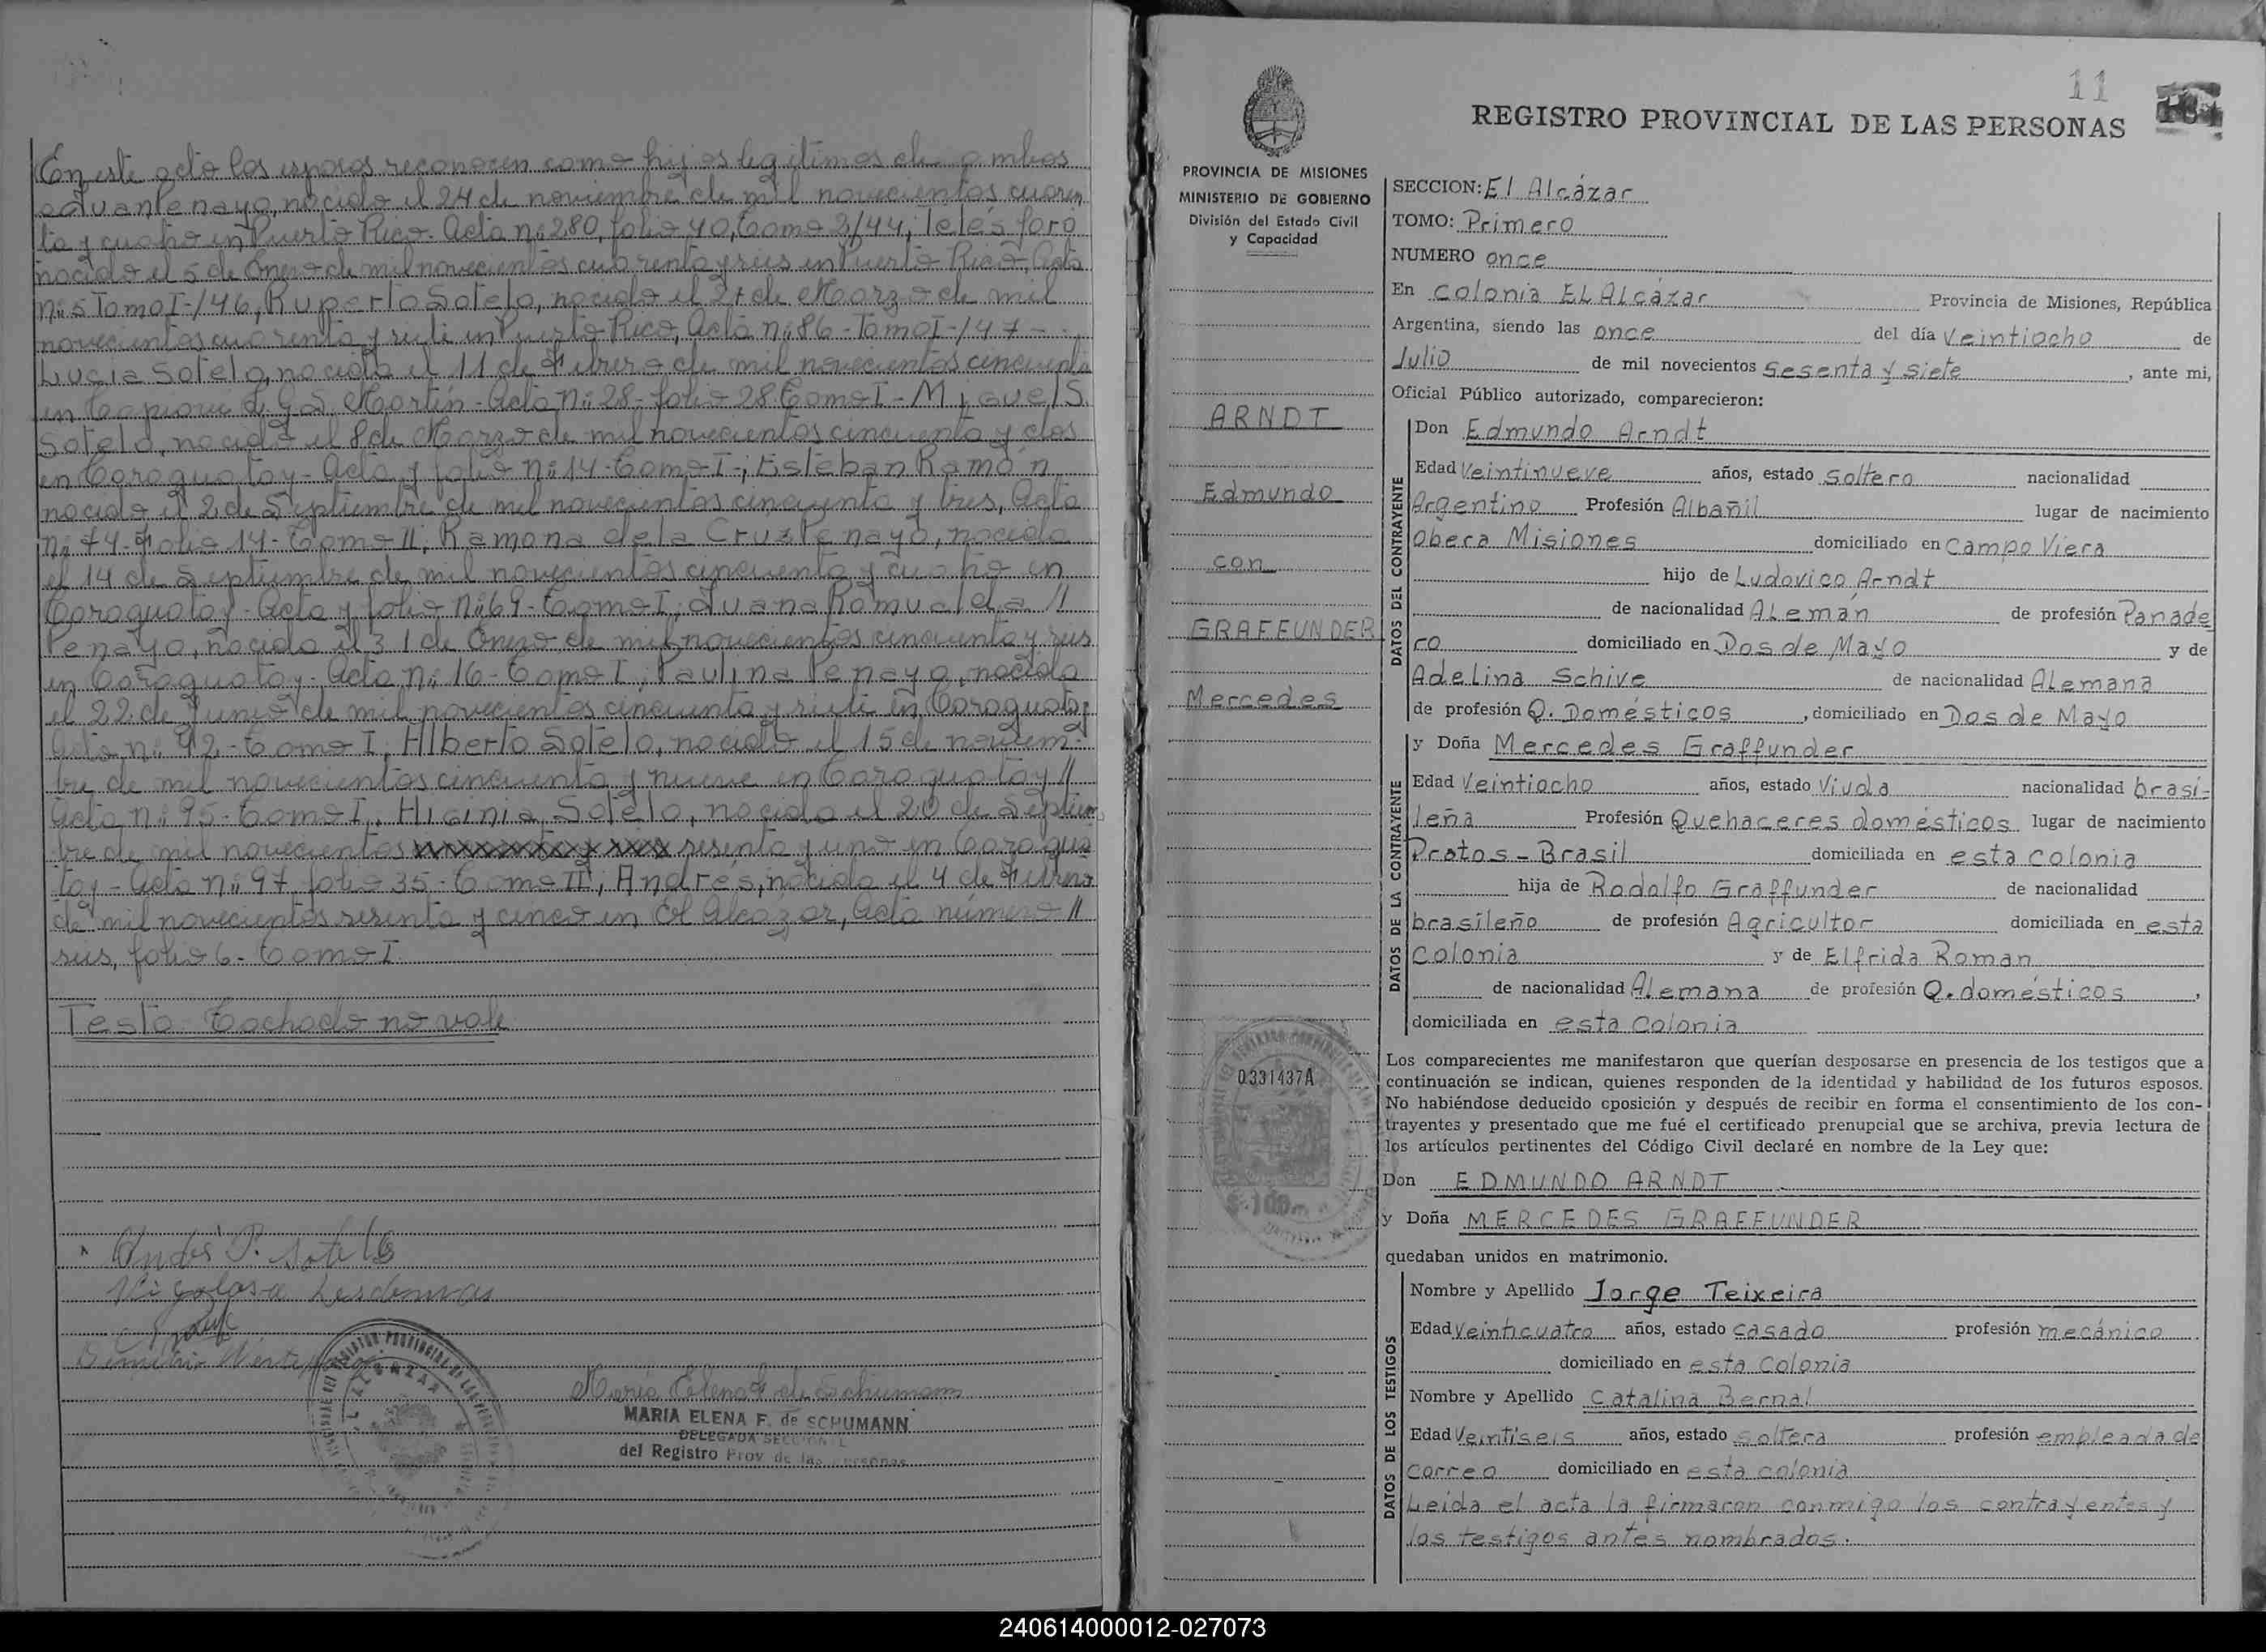 En este acto los esposos reconocen como hijos legitimos de ambos
a Juan Penayo, nacido el 24 de noviembre de mil novecientos cuaren
ta y cuatro en Puerto Rico. Acta nº 280, folio 40, Tomo 2/44; Telésforo
nacido el 5 de Enero de mil novecientos cuarenta y seis en Puerto Rico, Acta
nº 5 Tomo I-/46, Ruperto Sotelo, nacido el 27 de Marzo de mil
novecientos cuarenta y siete en Puerto Rico, Acta nº 86 - Tomo I-/47 -
Lucia Sotelo, nacida el 11 de Febrero de mil novecientos cincuenta
en Capioví L. Gdor. Martín - Acta nº 28 - folio 28 Tomo I - Miguel S.
Sotelo, nacido el 8 de Marzo de mil novecientos cincuenta y dos
en Caraguatay - Acta y folio nº 14 - Tomo I -; Esteban Ramón
nacido el 2 de Septiembre de mil novecientos cincuenta y tres, Acta
nº 74 - folio 14 - Tomo II; Ramona de la Cruz Penayo, nacida
el 14 de Septiembre de mil novecientos cincuenta y cuatro en
Caraguatay - Acta y folio nº 69 - Tomo I; Juana Romualda //
Penayo, nacida el 31 de Enero de mil novecientos cincuenta y seis
en Caraguatay - Acta nº 16 - Tomo I; Paulina Penayo, nacida
el 22 de Junio de mil novecientos cincuenta y siete en Caraguatay
Acta nº 42 - Tomo I, Alberto Sotelo, nacido el 15 de noviem-
bre de mil novecientos cincuenta y nueve en Caraguatay //
Acta nº 95 - Tomo I, Higinia Sotelo, nacida el 20 de Septiem
bre de mil novecientos sesenta y uno en Caragua
tay - Acta nº 97 folio 35 - Tomo II, Andres, nacido el 4 de Febrero
de mil novecientos sesenta y cinco en El Alcázar, Acta número //
seis, folio 6 - Tomo I.
Testo: Tachado no vale
Andrés P. Sotelo
Nicolasa Ledesma
MARIA ELENA F. de SCHUMANN
DELEGADA SECCIONAL
del Registro Prov. de las Personas
11
REGISTRO PROVINCIAL DE LAS PERSONAS
PROVINCIA DE MISIONES
MINISTERIO DE GOBIERNO
División del Estado Civil
y Capacidad
ARNDT
Edmundo
con
GRAFFUNDER
Mercedes
0331437A
SECCION: El Alcázar
TOMO: Primero
NUMERO once
En Colonia EL Alcázar Provincia de Misiones, República
Argentina, siendo las once del día veintiocho de
Julio de mil novecientos sesenta y siete, ante mi,
Oficial Público autorizado, comparecieron:
DATOS DEL CONTRAYENTE
Don Edmundo Arndt
Edad Veintinueve años, estado soltero nacionalidad
Argentino Profesión Albañil lugar de nacimiento
Obera Misiones domiciliado en Campo Viera
hijo de Ludovico Arndt
de nacionalidad ALemán de profesión Panade
ro domiciliado en Dos de Mayo y de
Adelina Schive de nacionalidad Alemana
de profesión Q. Domésticos, domiciliado en Dos de Mayo
DATOS DE LA CONTRAYENTE
y Doña Mercedes Graffunder
Edad Veintiocho años, estado Viuda nacionalidad brasi-
leña Profesión Quehaceres domésticos lugar de nacimiento
Pratos - Brasil domiciliada en esta colonia
hija de Rodolfo Graffunder de nacionalidad
brasileño de profesión Agricultor domiciliada en esta
Colonia y de Elfrida Roman
de nacionalidad Alemana de profesión Q. domésticos,
domiciliada en esta Colonia
Los comparecientes me manifestaron que querían desposarse en presencia de los testigos que a
continuación se indican, quienes responden de la identidad y habilidad de los futuros esposos.
No habiéndose deducido oposición y después de recibir en forma el consentimiento de los con-
trayentes y presentado que me fué el certificado prenupcial que se archiva, previa lectura de
los artículos pertinentes del Código Civil declaré en nombre de la Ley que:
Don EDMUNDO ARNDT
y Doña MERCEDES GRAFFUNDER
quedaban unidos en matrimonio.
DATOS DE LOS TESTIGOS
Nombre y Apellido Jorge Teixeira
Edad Veinticuatro años, estado casado profesión mecánico
domiciliado en esta Colonia
Nombre y Apellido Catalina Bernal
Edad Veintiseis años, estado soltera profesión empleada de
correo domiciliado en esta colonia
Leída el acta la firmaron conmigo los contrayentes y
los testigos antes nombrados.
240614000012-027073